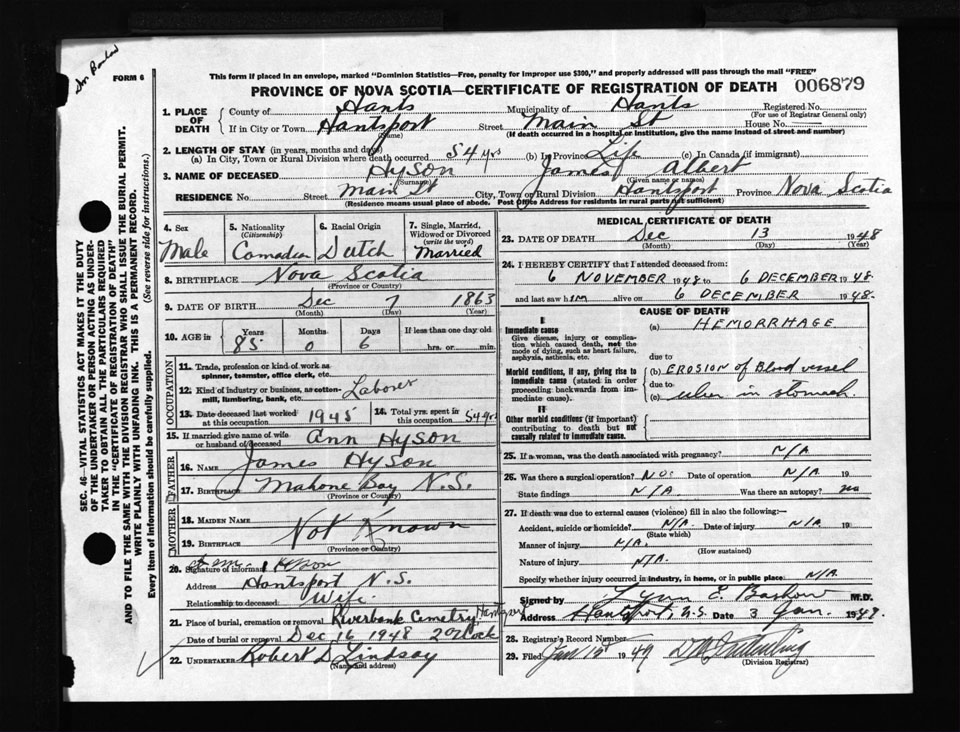 Dr Barlow
FORM 6
This form if placed in an envelope, marked "Dominion Statistics—Free, penalty for improper use $300," and properly addressed will pass through the mail "FREE"
PROVINCE OF NOVA SCOTIA—CERTIFICATE OF REGISTRATION OF DEATH 006879
1. PLACE OF DEATH
County of Hants Municipality of Hants Registered No.
(For use of Registrar General only)
If in City or Town Hantsport Street Main St House No.
(Name) (If death occurred in a hospital or institution, give the name instead of street and number)
2. LENGTH OF STAY (in years, months and days)
(a) In City, Town or Rural Division where death occurred 54 yrs (b) In Province Life (c) In Canada (if immigrant)
3. NAME OF DECEASED Hyson James Albert
(Surname) (Given name or names)
RESIDENCE No Street Main St City, Town or Rural Division Hantsport Province Nova Scotia
(Residence means usual place of abode. Post Office Address for residents in rural parts not sufficient)
4. Sex Male
5. Nationality (Citizenship) Canadian
6. Racial Origin Dutch
7. Single, Married, Widowed or Divorced (write the word) Married
8. BIRTHPLACE Nova Scotia
(Province or Country)
9. DATE OF BIRTH Dec 7 1863
(Month) (Day) (Year)
10. AGE in Years Months Days If less than one day old
85 0 6 hrs. or min.
OCCUPATION
11. Trade, profession or kind of work as spinner, teamster, office clerk, etc.
12. Kind of industry or business, as cotton-mill, lumbering, bank, etc. Laborer
13. Date deceased last worked at this occupation 1945
14. Total yrs. spent in this occupation 54 yrs
15. If married give name of wife or husband of deceased Ann Hyson
FATHER
16. NAME James Hyson
17. BIRTHPLACE Mahone Bay N.S.
(Province or Country)
MOTHER
18. MAIDEN NAME
Not Known
19. BIRTHPLACE
(Province or Country)
20. Signature of informant
Address Hantsport N.S.
Relationship to deceased Wife
21. Place of burial, cremation or removal Riverbank Cemetry, Hantsport
Date of burial or removal Dec 16 1948 2 o'clock
22. UNDERTAKER Robert D Lindsay
(Name and address)
MEDICAL CERTIFICATE OF DEATH
23. DATE OF DEATH Dec 13 1948
(Month) (Day) (Year)
24. I HEREBY CERTIFY that I attended deceased from:
6 NOVEMBER 1948 to 6 DECEMBER 1948
and last saw him alive on 6 DECEMBER 1948.
CAUSE OF DEATH
I
Immediate cause
Give disease, injury or complication which caused death, not the mode of dying, such as heart failure, asphyxia, asthenia, etc.
(a) HEMORRHAGE
due to
Morbid conditions, if any, giving rise to immediate cause (stated in order proceeding backwards from immediate cause).
(b) EROSION of Blood vessel
due to
(c) ulcer in stomach.
II
Other morbid conditions (if important) contributing to death but not causally related to immediate cause.
25. If a woman, was the death associated with pregnancy? N/A
26. Was there a surgical operation? No Date of operation N/A 19
State findings N/A Was there an autopsy? no
27. If death was due to external causes (violence) fill in also the following:—
Accident, suicide or homicide? N/A. Date of injury N/A 19
(State which)
Manner of injury N/A.
(How sustained)
Nature of injury N/A.
Specify whether injury occurred in industry, in home, or in public place N/A.
Signed by Lynn E. Barlow M.D.
Address Hantsport, N.S. Date 3 Jan. 1949.
28. Registrar's Record Number
29. Filed Jan 15 1949
(Division Registrar)
SEC. 46—VITAL STATISTICS ACT MAKES IT THE DUTY
OF THE UNDERTAKER OR PERSON ACTING AS UNDERTAKER TO OBTAIN ALL THE PARTICULARS REQUIRED
IN THE "CERTIFICATE OF REGISTRATION OF DEATH"
AND TO FILE THE SAME WITH THE DIVISION REGISTRAR WHO SHALL ISSUE THE BURIAL PERMIT.
WRITE PLAINLY WITH UNFADING INK. THIS IS A PERMANENT RECORD.
Every item of information should be carefully supplied. (See reverse side for instructions.)